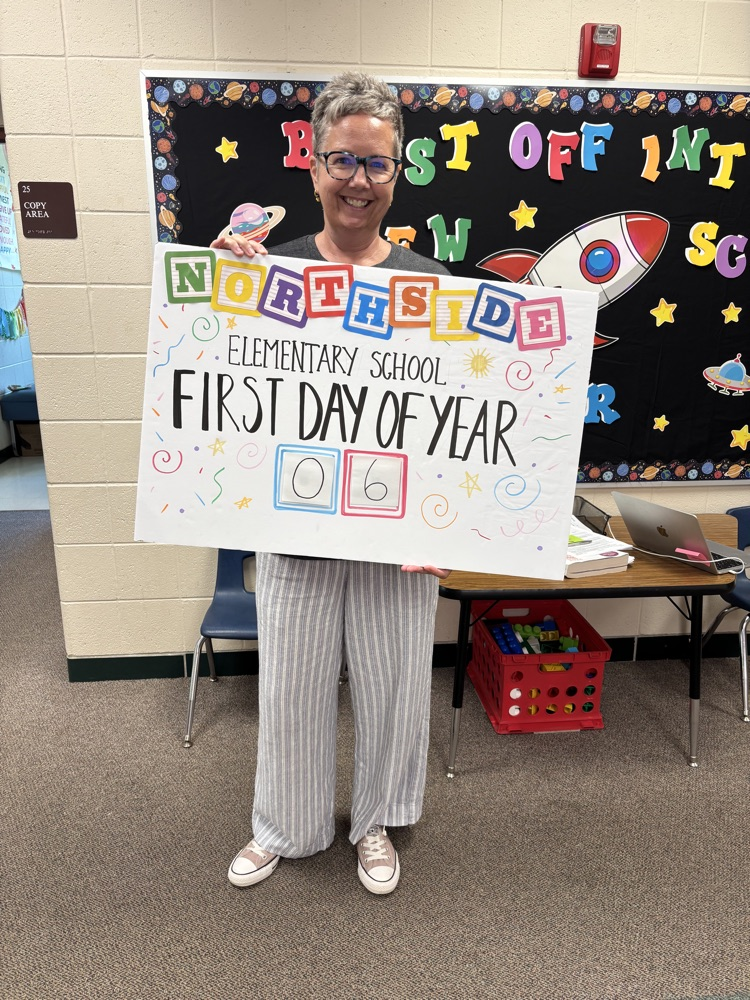 25
COPY
AREA
B ST OF INT
EW SC
R
NORTHSIDE
ELEMENTARY SCHOOL
FIRST DAY OF YEAR
06